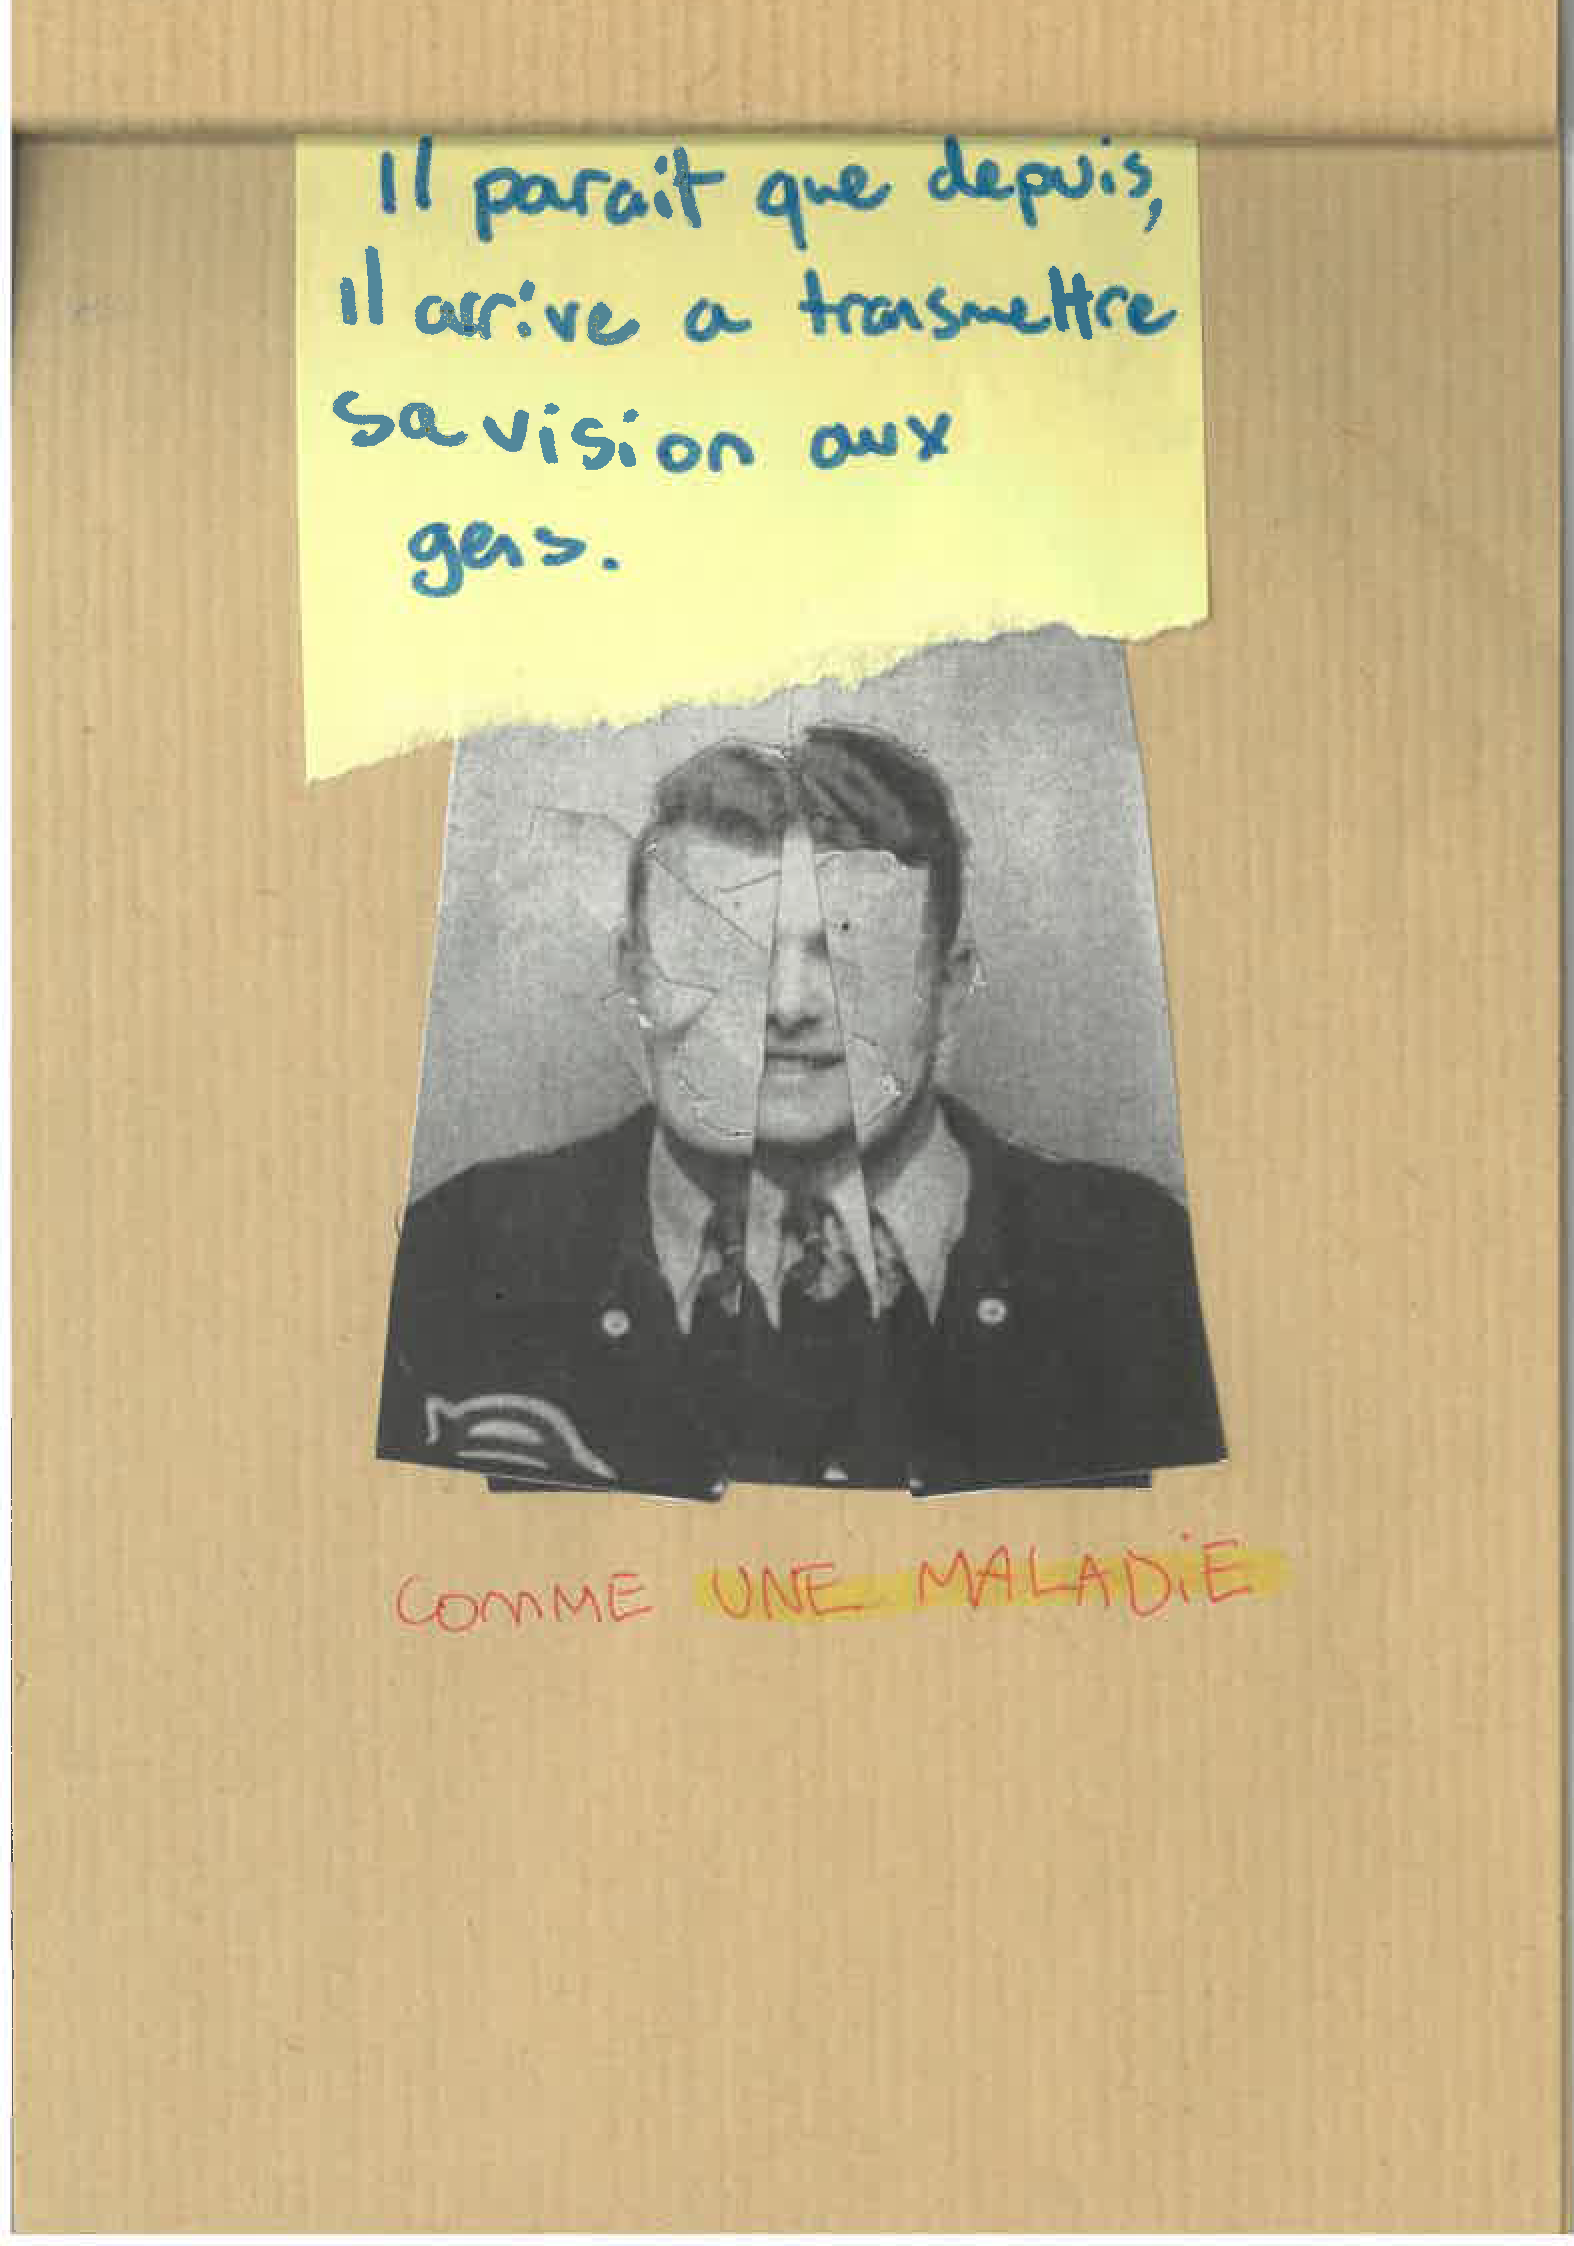 Il parait que depuis,
Il arrive a transmettre
sa vision aux
gens.
COMME UNE MALADIE